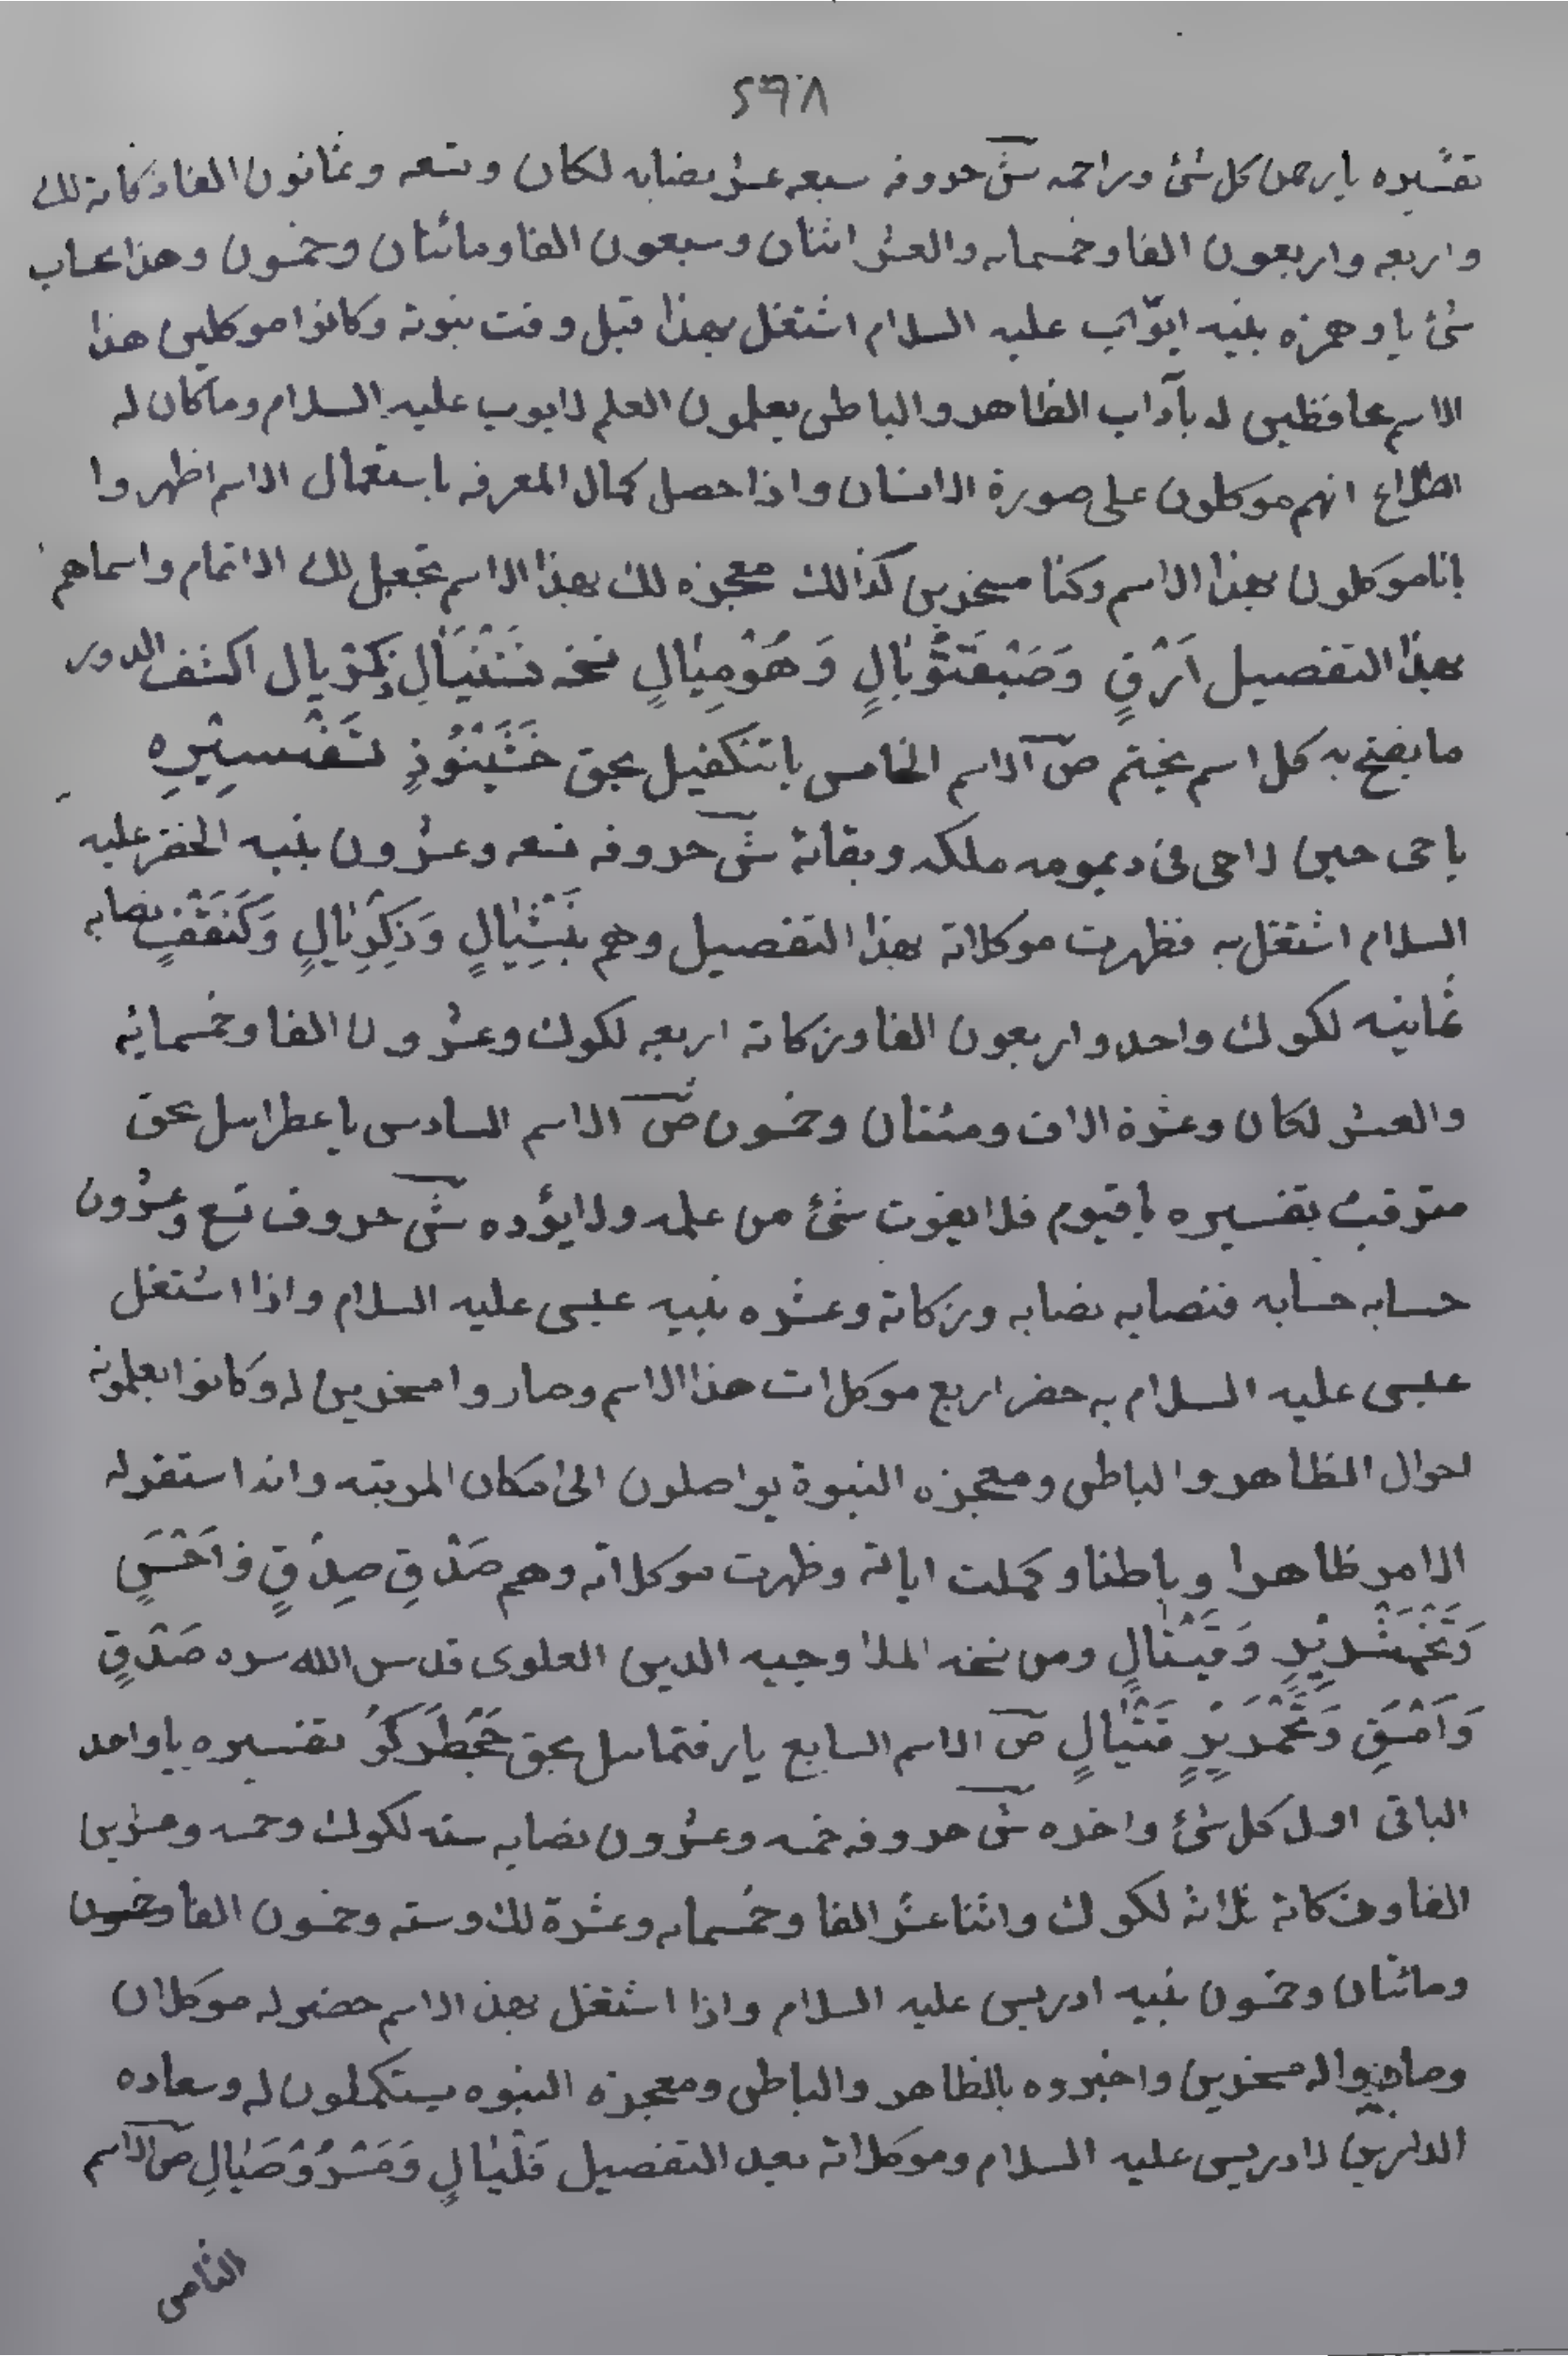 ٢٩٨
تفسيره يا رحمن كل شئ وراحمه ش حروفه سبعه عشر نصابه لكان وتسعه وثمانون الفا وزكاته لك
واربعه واربعون الفا وخمسمايه والعشر اثنان وسبعون الفا ومائتان وخمسون وهذا بحساب
شئ يا وهمزه بنيه ايوّاب عليه السلام اشتغل بهذا قبل وقت نبوته وكانوا موكلين هذا
الاسم محافظين له بآداب الظاهر والباطن يعلمون العلم لايوب عليه السلام وما كان له
اطلاع انهم موكلون على صورة الانسان واذا حصل كمال المعرفه باستعمال الاسم اظهروا
بانا موكلون بهذا الاسم وكنا مسخرين كذالك معجزه لك بهذا الاسم تجعل لك الاتمام واسماهم
بهذا التفصيل وَهُوْمِيَالٍ نسخه اكشف الدور
ما يفتح به كل اسم يختم ص الاسم الخامس يا تنكفيل بحق تَفْسِيْرِهِ
يا حى حين لا حى فى ديمومه ملكه وبقائه ش حروفه تسعه وعشرون بنبيه الخضر عليه
السلام اشتغل به فظهرت موكلاته بهذا التفصيل وهم نصابه
ثمانيه لكوك واحد واربعون الفا وزكاته اربعه لكوك وعشرون الفا وخمسمايه
والعشر لكان وعشرة الاف ومئتان وخمسون ص الاسم السادس يا عطرايل بحق
بتفسيره يا قيوم فلا يفوت شئ من علمه ولا يؤده ش حروف تسع وعشرون
حسابه حسابه فنصابه نصابه وزكاته وعشره بنبيه عيسى عليه السلام واذا اشتغل
عيسى عليه السلام به حضر اربع موكلات هذا الاسم وصاروا مسخرين له وكانوا يعلمونه
احوال الظاهر والباطن ومعجزه النبوة يواصلون الى مكان المرتبه وانه استقر له
الامر ظاهرا وباطنا وكملت اياته وظهرت موكلاته وهم صَدْقٍ صِدْقٍ
ومن نسخه الملا وجيه الدين العلوى قدس الله سره صَدْقٍ
ص الاسم السابع يا رفتمايل بحق تفسيره يا واحد
الباقى اول كل شئ واخره ش حروفه خمسه وعشرون نصابه سته لكوك وخمسه وعشرين
الفا وزكاته ثلاثه لكوك واثنا عشر الفا وخمسمايه وعشرة لك وسته وخمسون الفا وخمسون
ومائتان وخمسون بنبيه ادريس عليه السلام واذا اشتغل بهذ الاسم حضر له موكلان
وصاروا له مسخرين واخبروه بالظاهر والباطن ومعجزه النبوه يستكملون له وسعاده
الدارين لادريس عليه السلام وموكلاته بهذ التفصيل ص الاسم
الثامن